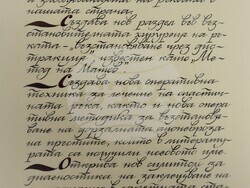 нашата страна.
Създава нов раздел във въз-
становителната хирургия на ръ-
ката - „възстановяване чрез дис-
тракция", известен като „Ме-
тод на Матев".
Създава нова оперативна
техника за лечение на спастич-
ната ръка, както и нова опера-
тивна методика за възстановя-
ване на дорзалната апоневроза
на пръстите, които в литерату-
рата са цитирани неговото име
Открива нов симптом за
диагностика на заклещване на